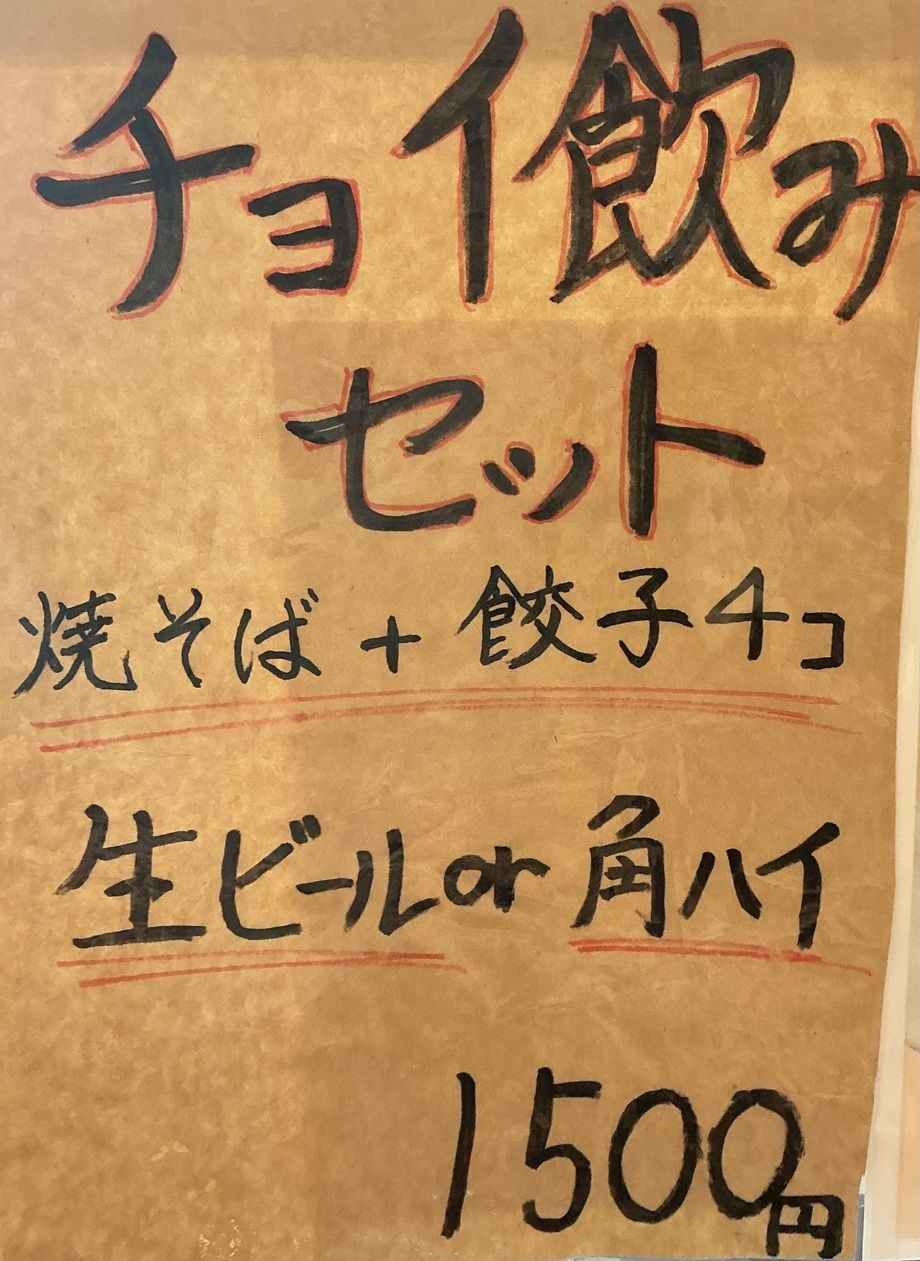 チョイ飲み
セット
焼そば+餃子4コ
生ビールor角ハイ
1500円